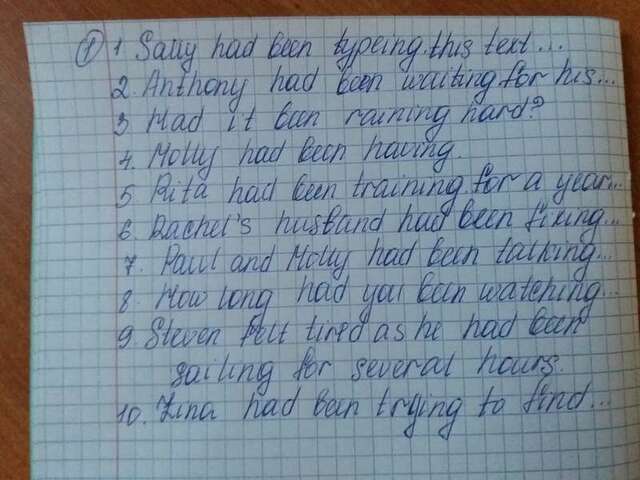 ① 1. Sally had been typeing this text...
2. Anthony had been waiting for his...
3 Had it been raining hard?
4. Molly had been having.
5. Rita had been training for a year...
6. Rachel's husband had been fixing...
7. Paul and Molly had been talking...
8. How long had you been watching...
9. Steven felt tired as he had been
sailing for several hours.
10. Lina had been trying to find...